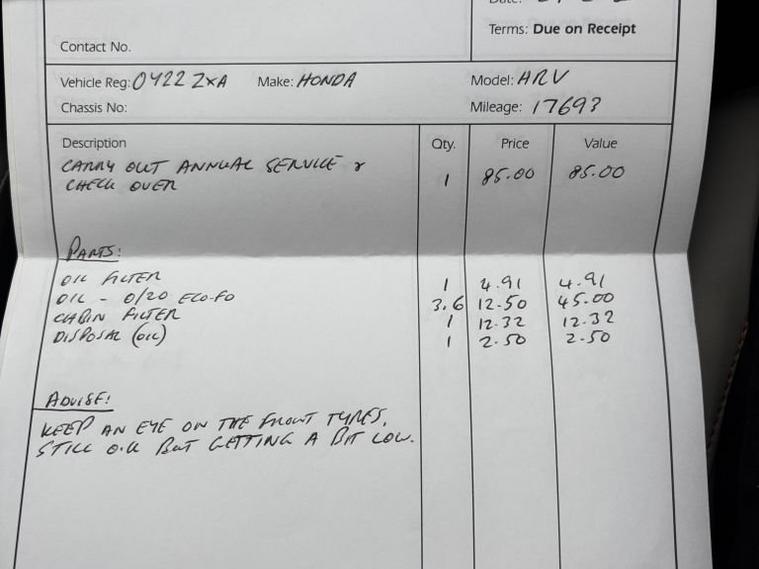 Date:
Terms: Due on Receipt
Contact No.
Vehicle Reg: OY22 ZXA Make: HONDA Model: HRV
Chassis No: Mileage: 17693
Description Qty. Price Value
CARRY OUT ANNUAL SERVICE &
CHECK OVER 1 85.00 85.00
PARTS:
OIL FILTER 1 4.91 4.91
OIL - 0/20 ECO-FO 3.6 12.50 45.00
CABIN FILTER 1 12.32 12.32
DISPOSAL (OIL) 1 2.50 2.50
ADVISE:
KEEP AN EYE ON THE FRONT TYRES,
STILL O.K BUT GETTING A BIT LOW.